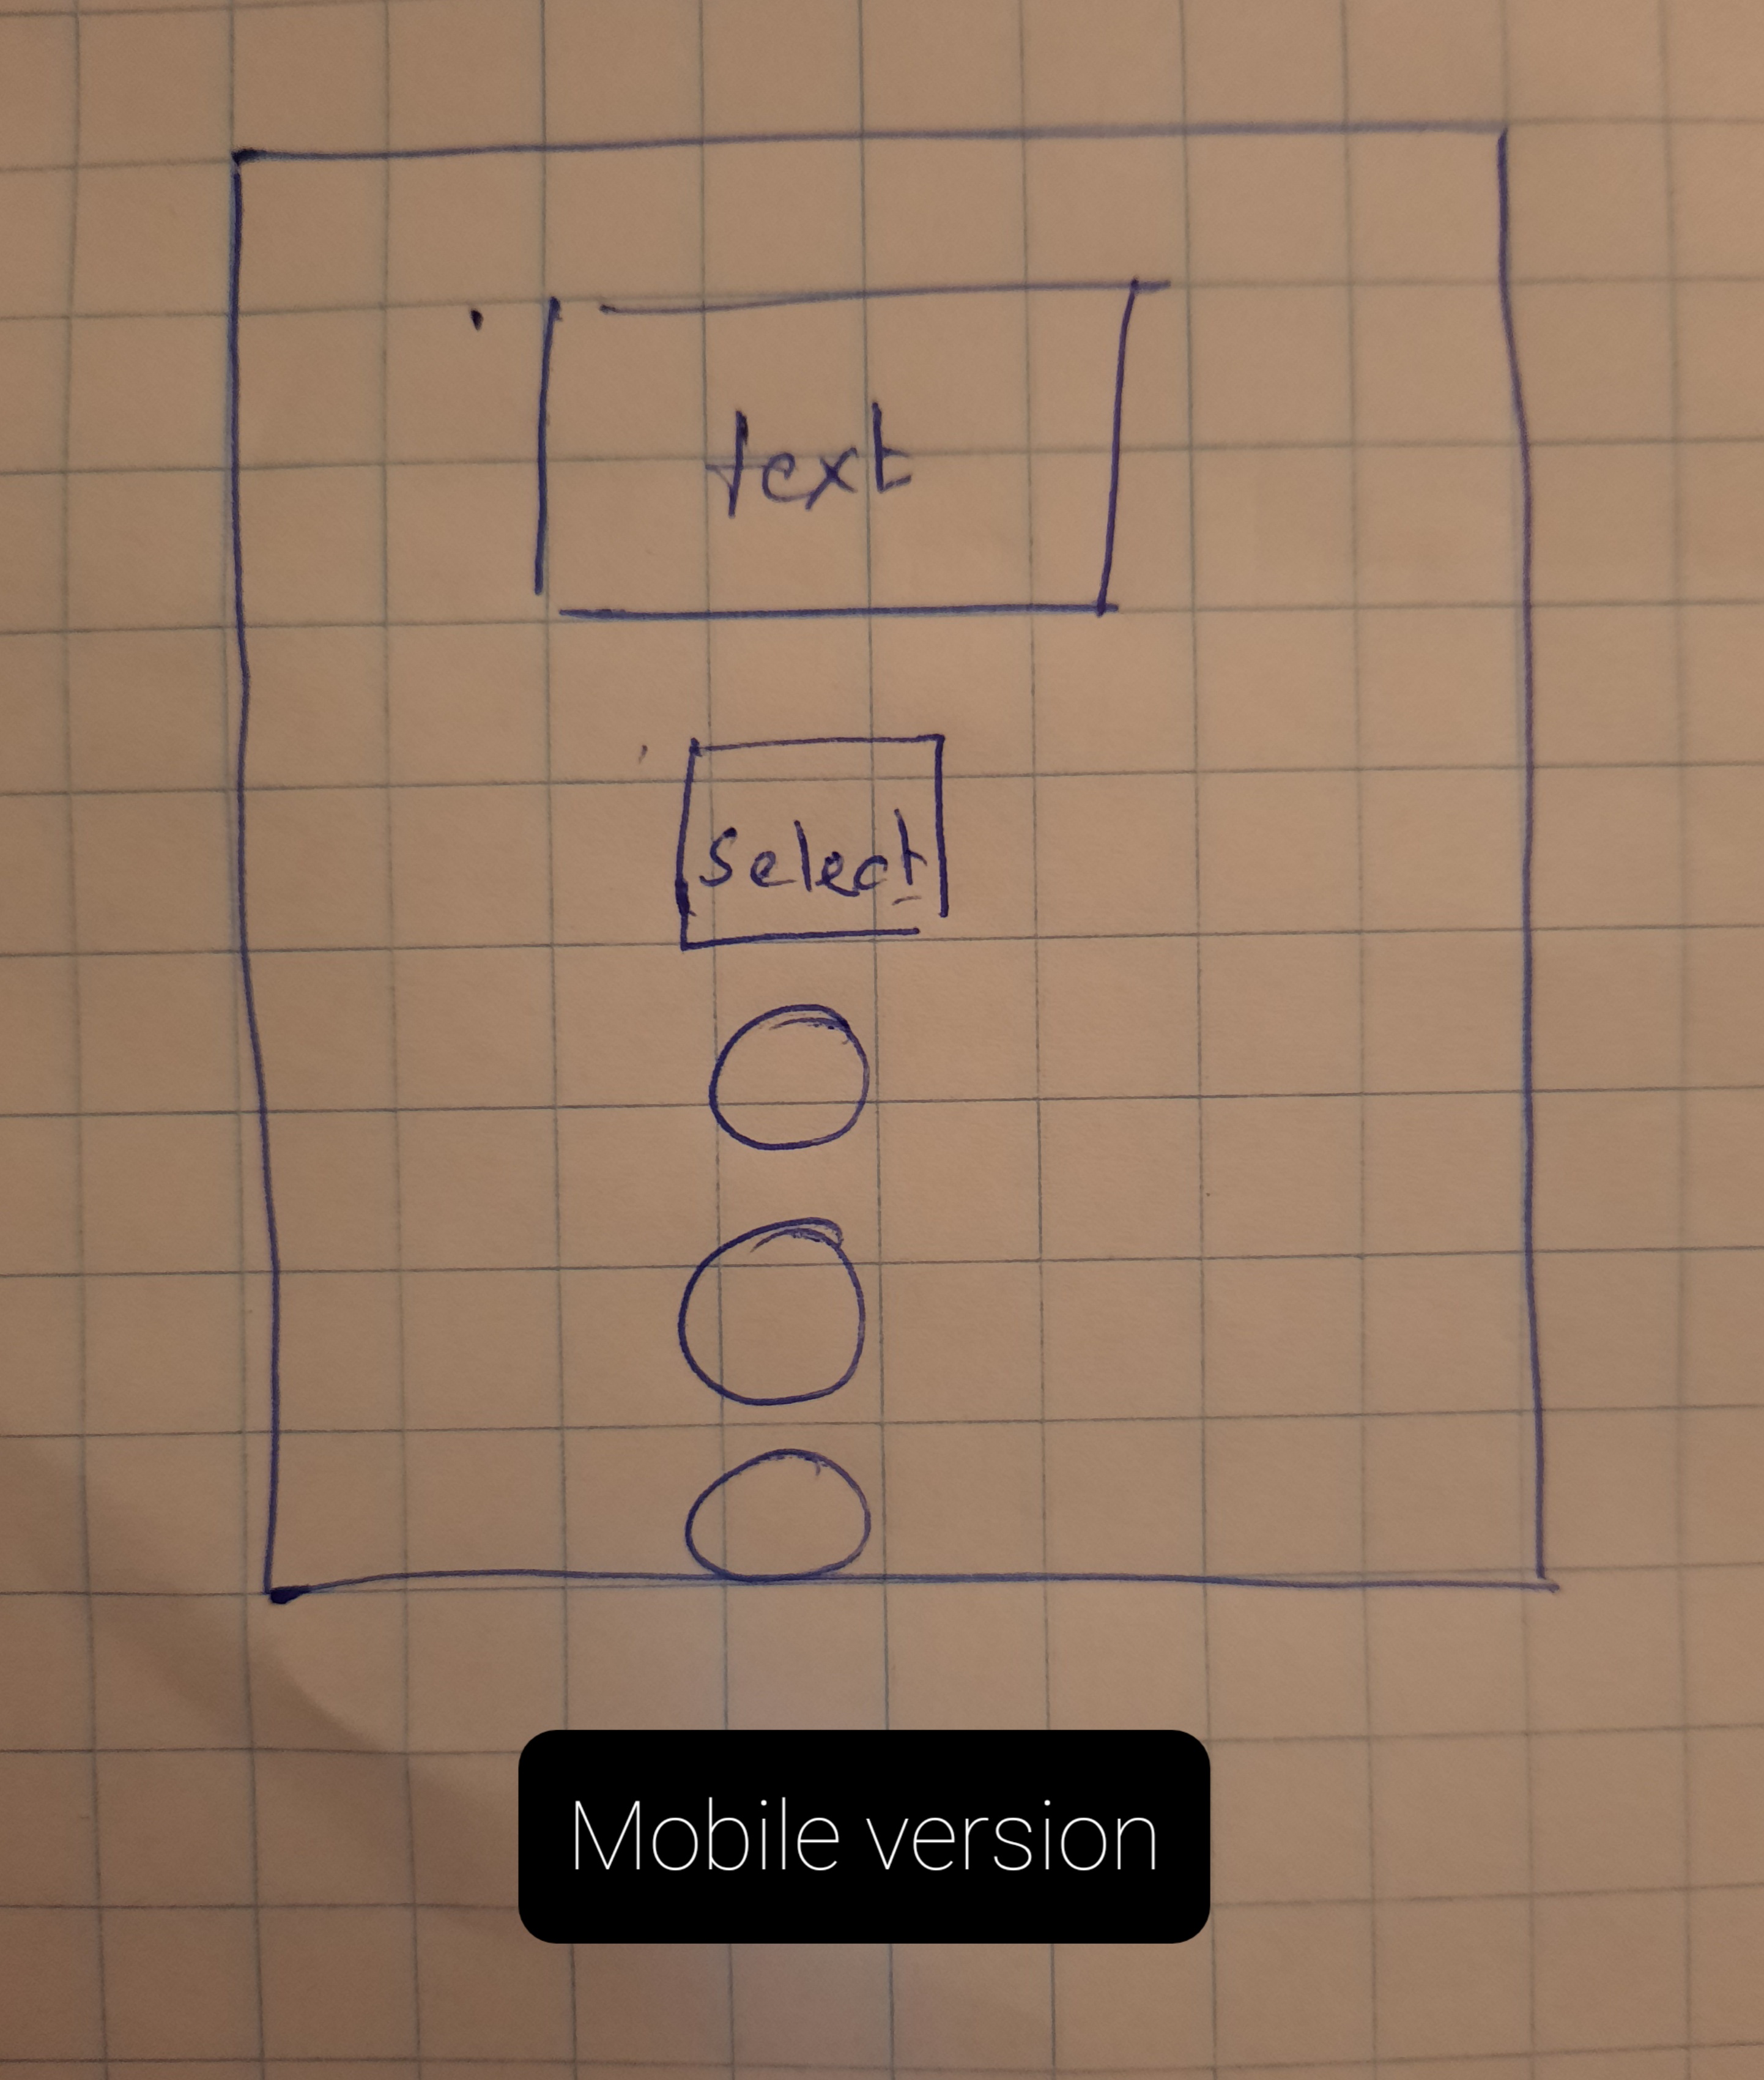 text
select
Mobile version